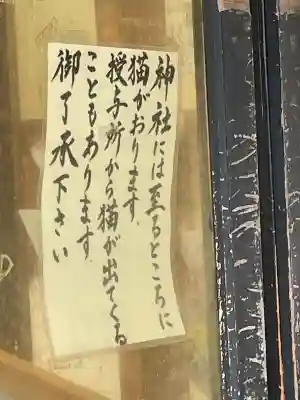 神社には至るところに
猫がおります。
授与所から猫が出てくる
こともあります。
御了承下さい